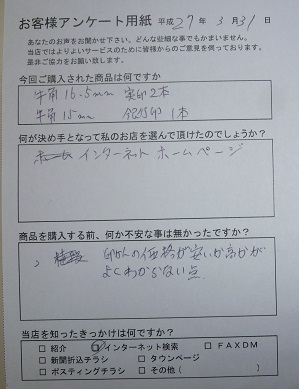 お客様アンケート用紙 平成27年 3月31日
あなたのお声をお聞かせ下さい。どんな些細な事でもかまいません。
当店ではよりよいサービスのために皆様からのご意見を伺っております。
是非ご協力をお願い致します。
今回ご購入された商品は何ですか
牛角16.5mm 実印2本
牛角15mm 銀行印1本
何が決め手となって私のお店を選んで頂けたのでしょうか?
インターネットホームページ
商品を購入する前、何か不安な事は無かったですか?
印かんの価格が安いか高かが
よくわからない点
当店を知ったきっかけは何ですか?
□ 紹介 インターネット検索 □ FAXDM
□ 新聞折込チラシ □ タウンページ
□ ポスティングチラシ □ その他( )